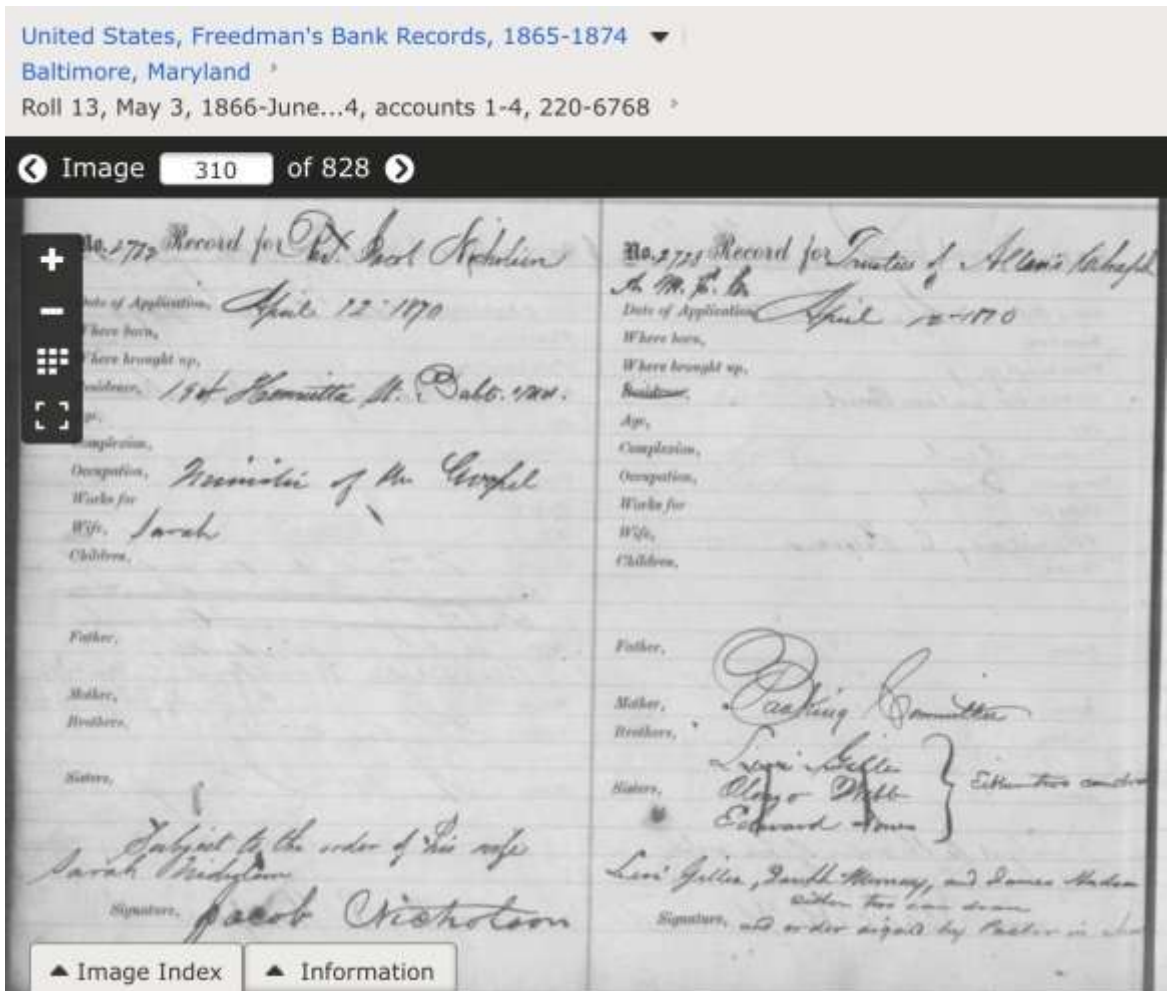 United States, Freedman's Bank Records, 1865-1874
Baltimore, Maryland
Roll 13, May 3, 1866-June...4, accounts 1-4, 220-6768
Image 310 of 828
No. 2772 Record for Jacob
Date of Application, April 12 1870
Where born,
Where brought up,
Residence, Henrietta St. Balt. Md.
Age,
Complexion,
Occupation, Minister of the Gospel
Works for
Wife, Sarah
Children,
Father,
Mother,
Brothers,
Sisters,
Subject to the order of his wife
Sarah
Signature, Jacob Nicholson
Image Index
Information
No. 2773 Record for Trustees of Allen's
A. M. E.
Date of Application, April 12 1870
Where born,
Where brought up,
Residence,
Age,
Complexion,
Occupation,
Works for
Wife,
Children,
Father,
Mother, Banking Committee
Brothers,
Levi
Sisters, Webb
Edward Jones
Either two can draw
Levi and James
either two can draw
Signature, and order signed by Pastor in